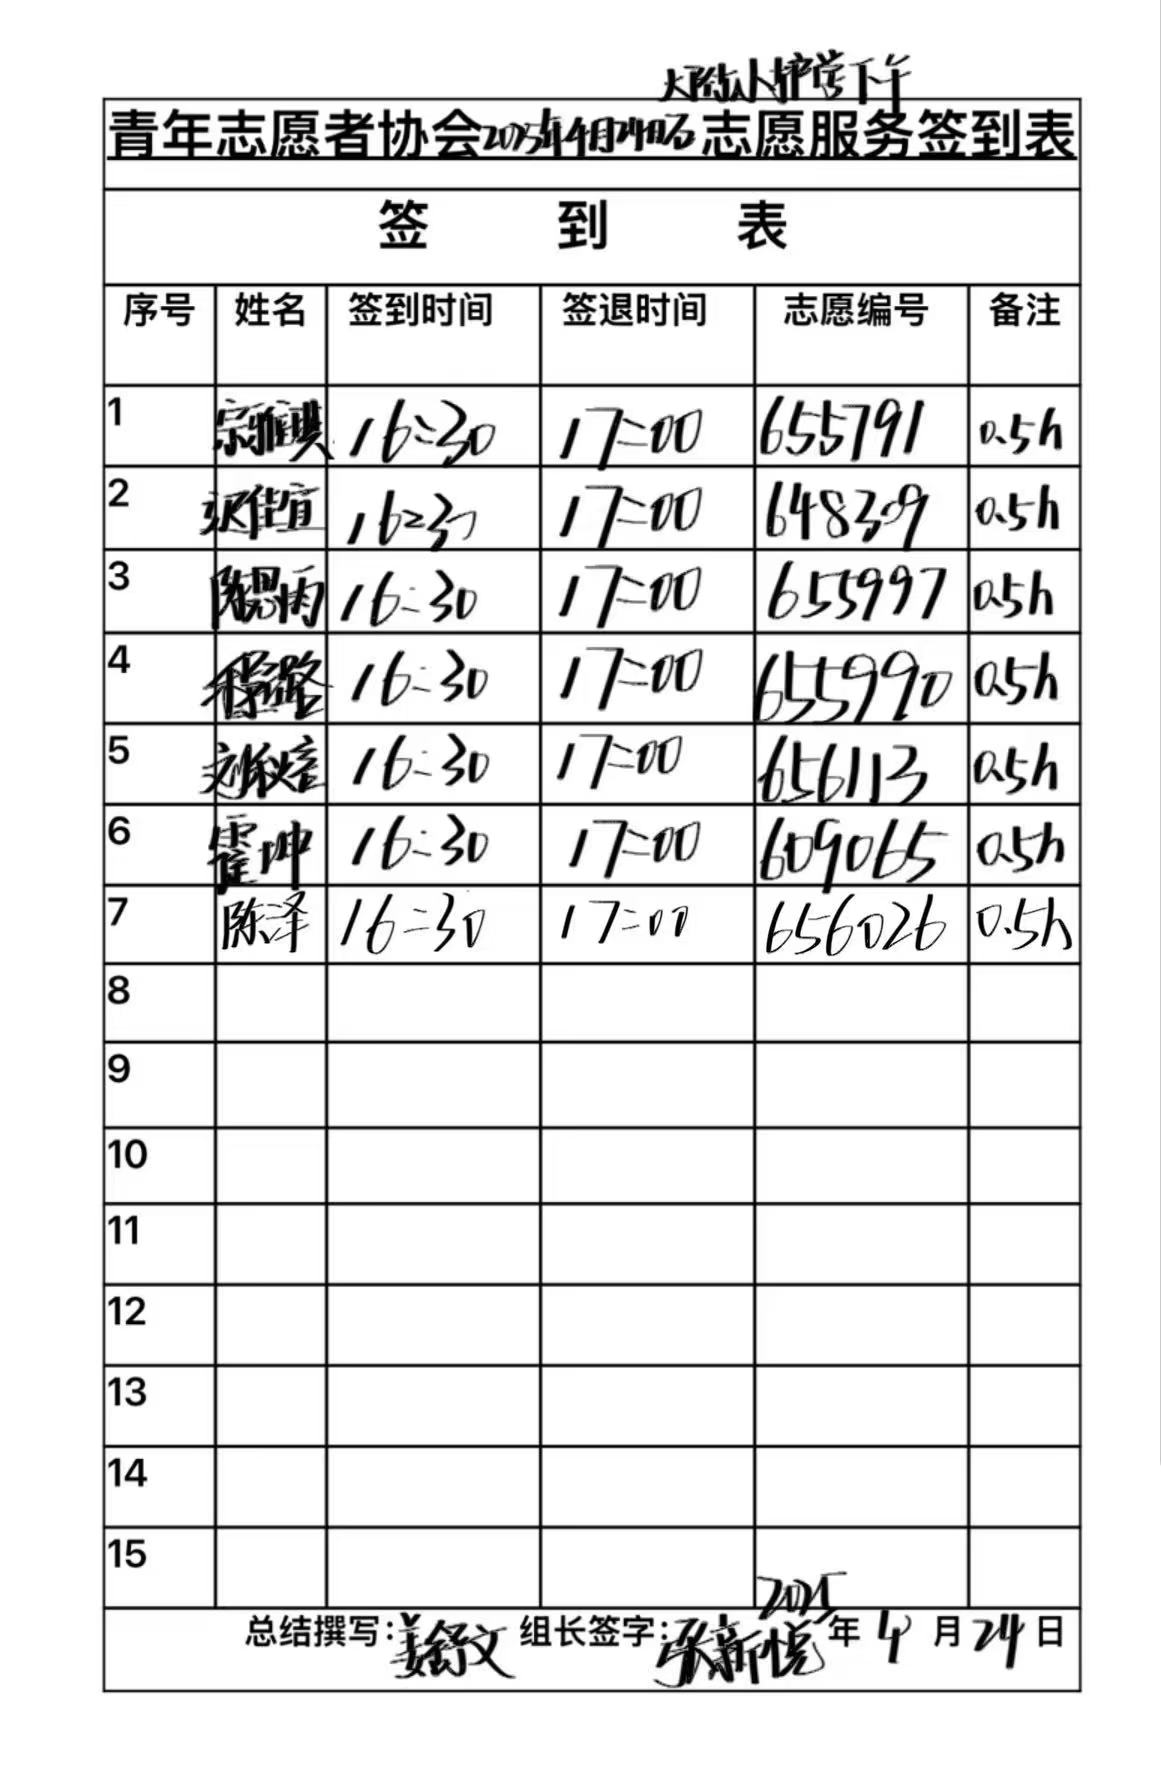 下午
青年志愿者协会2025年4月24日 志愿服务签到表
签 到 表
序号 姓名 签到时间 签退时间 志愿编号 备注
1 16:30 17:00 655791 0.5h
2 佳宜 16:30 17:00 648309 0.5h
3 陈思雨 16:30 17:00 655997 0.5h
4 16:30 17:00 655990 0.5h
5 16:30 17:00 656113 0.5h
6 霍坤 16:30 17:00 609065 0.5h
7 陈泽 16:30 17:00 656026 0.5h
8
9
10
11
12
13
14
15
总结撰写:姜舒文 组长签字:张新悦 2025年4月24日